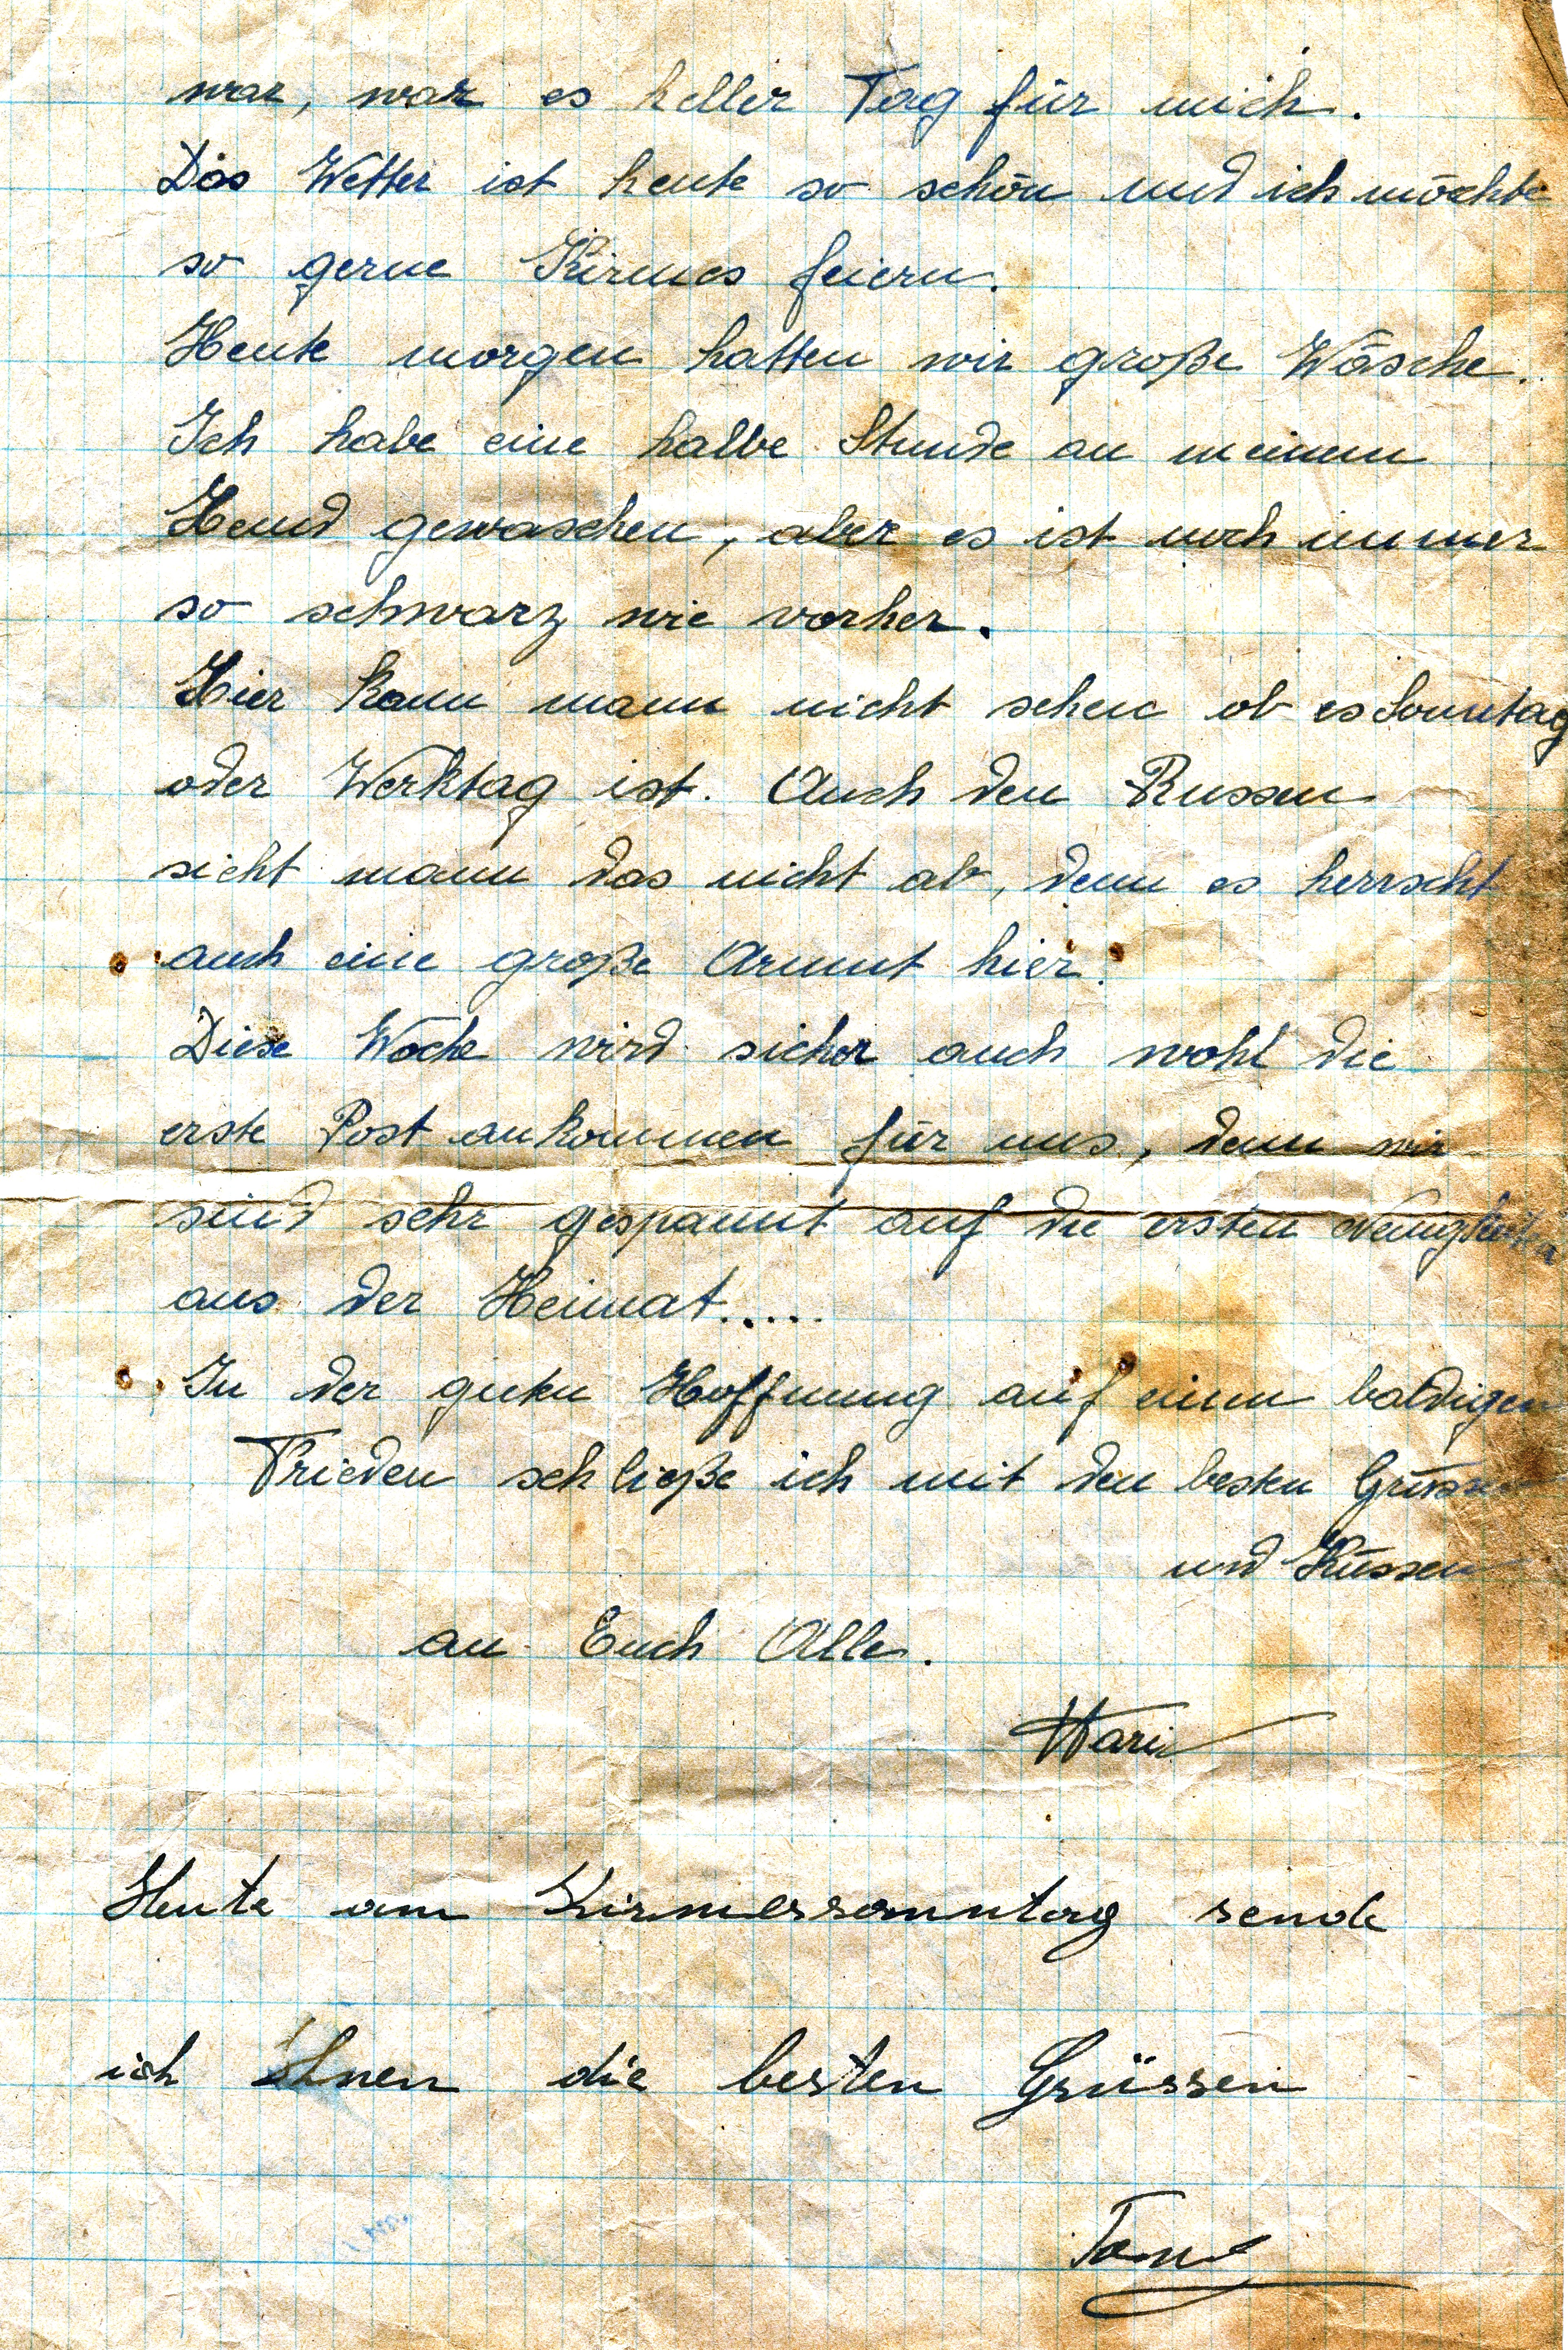 war, war es heller Tag für mich.
Das Wetter ist heute so schön und ich möchte
so gerne Kirmes feiern.
Heute morgen hatten wir große Wäsche.
Ich habe eine halbe Stunde an meinem
Hemd gewaschen, aber es ist noch immer
so schwarz wie vorher.
Hier kann mann nicht sehen ob es Sonntag
oder Werktag ist. Auch den Russen
sieht mann das nicht ab, denn es herrscht
auch eine große Armut hier.
Diese Woche wird sicher auch wohl die
erste Post ankommen für uns, denn wir
sind sehr gespannt auf die ersten Neuigkeiten
aus der Heimat.....
In der guten Hoffnung auf einen baldigen
Frieden schließe ich mit den besten Grüssen
und Küssen
an Euch Alle.
Heute am Kirmessonntag sende
ich Ihnen die besten Grüssen